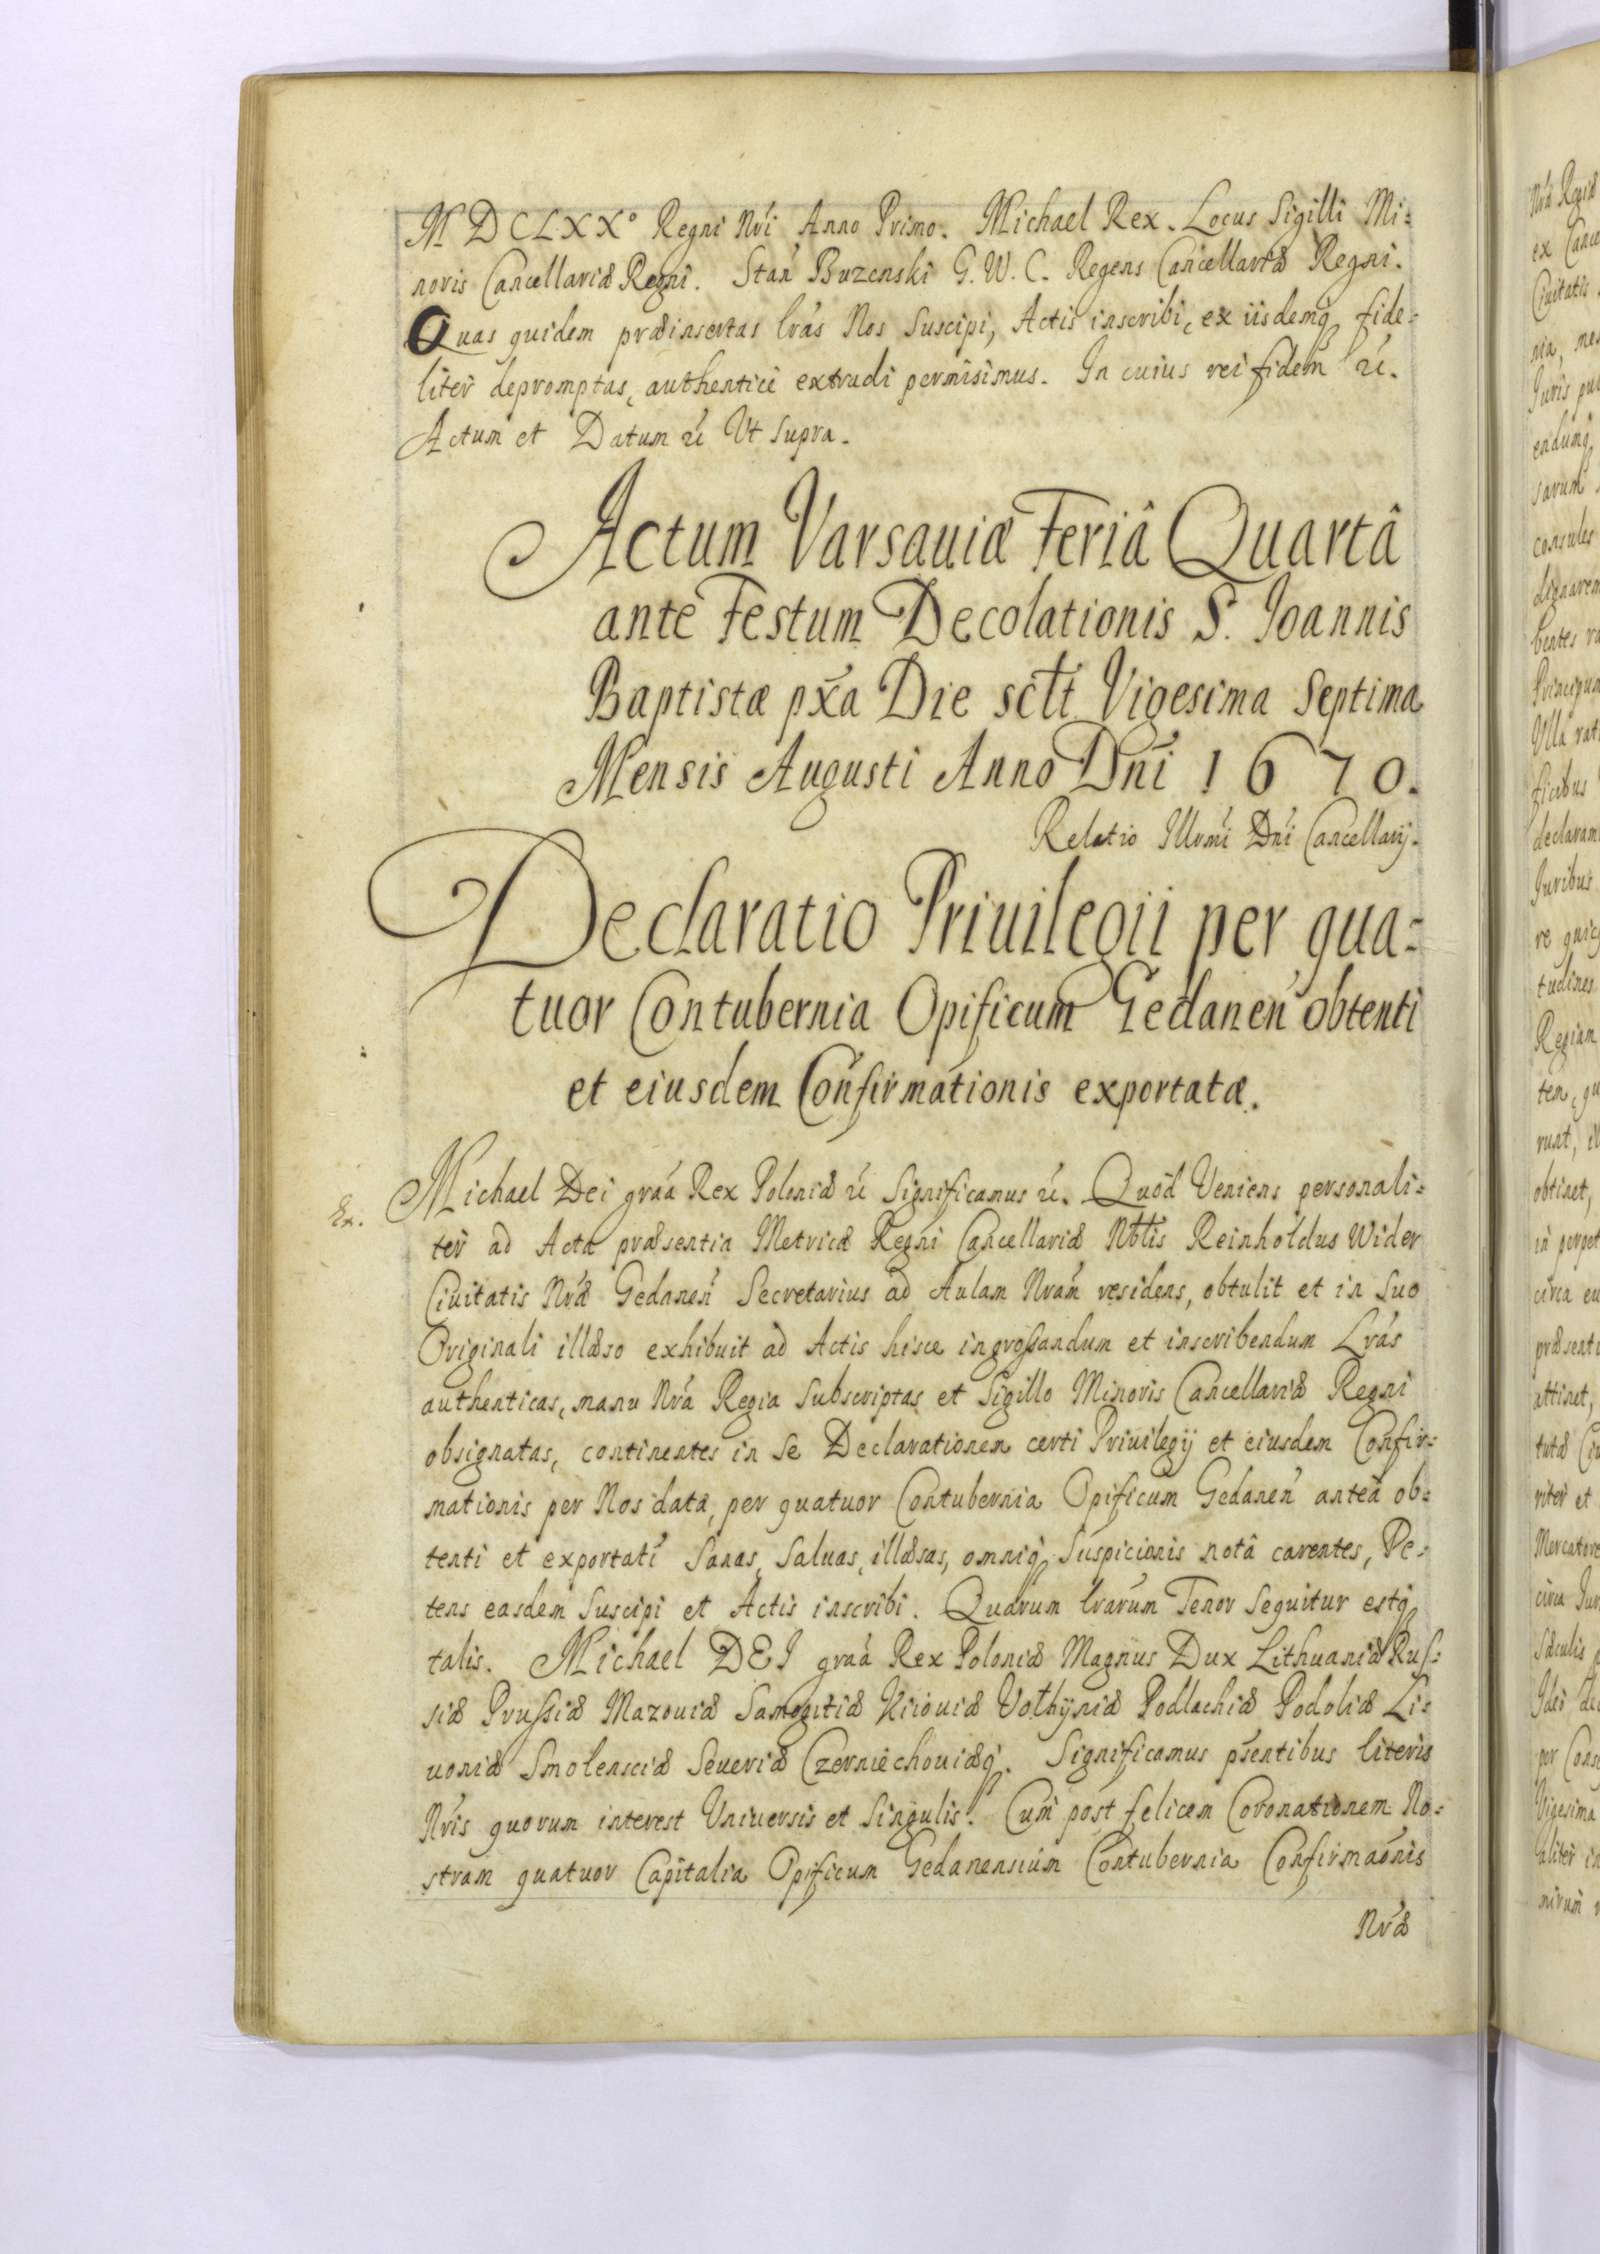 MDCLXX° Regni Nri Anno Primo. Michael Rex. Locus Sigilli Mi:
noris Cancellariæ Regni. Stan Buzenski G. W. C. Regens Cancellariæ Regni.
Quas quidem præinsertas lras Nos Suscipi, Actis inscribi, ex iisdemq fide:
liter depromptas, authentice extradi permisimus. In cuius rei fidem &c.
Actum et Datum &c Vt supra.
Actum Varsauiæ Feriâ Quartâ
ante Festum Decolationis S. Joannis
Baptistæ pxa Die sctt Vigesima Septima
Mensis Augusti Anno Dni 1670.
Relatio Illrmi Dni Cancellarij.
Declaratio Priuilegii per qua:
tuor Contubernia Opificum Gedanen obtenti
et eiusdem Confirmationis exportatæ.
Ex. Michael Dei graa Rex Poloniæ &c Significamus &c. Quod Veniens personali:
ter ad Acta præsentia Metricæ Regni Cancellariæ Nbtis Reinholdus Wider
Ciuitatis Nræ Gedanen Secretarius ad Aulam Nram residens, obtulit et in Suo
Originali illæso exhibuit ad Actis hisce ingrossandum et inscribendum Lras
authenticas, manu Nra Regia Subscriptas et Sigillo Minoris Cancellariæ Regni
obsignatas, continentes in Se Declarationem certi Priuilegij et eiusdem Confir:
mationis per Nos data, per quatuor Contubernia Opificum Gedanen anteà ob:
tenti et exportati Sanas, Saluas, illæsas, omniq Suspicionis notâ carentes, Pe:
tens easdem Suscipi et Actis inscribi. Quarum lrarum Tenor Sequitur estq
talis. Michael DEI graa Rex Poloniæ Magnus Dux Lithuaniæ Rus:
siæ Prussiæ Mazouiæ Samogitiæ Kiiouiæ Volhyniæ Podlachiæ Podoliæ Li:
uoniæ Smolensciæ Seueriæ Czerniechouiæq. Significamus psentibus literis
Nris quorum interest Vniuersis et Singulis. Cum post felicem Coronationem No:
stram quatuor Capitalia Opificum Gedanensium Contubernia Confirmaonis
Nræ